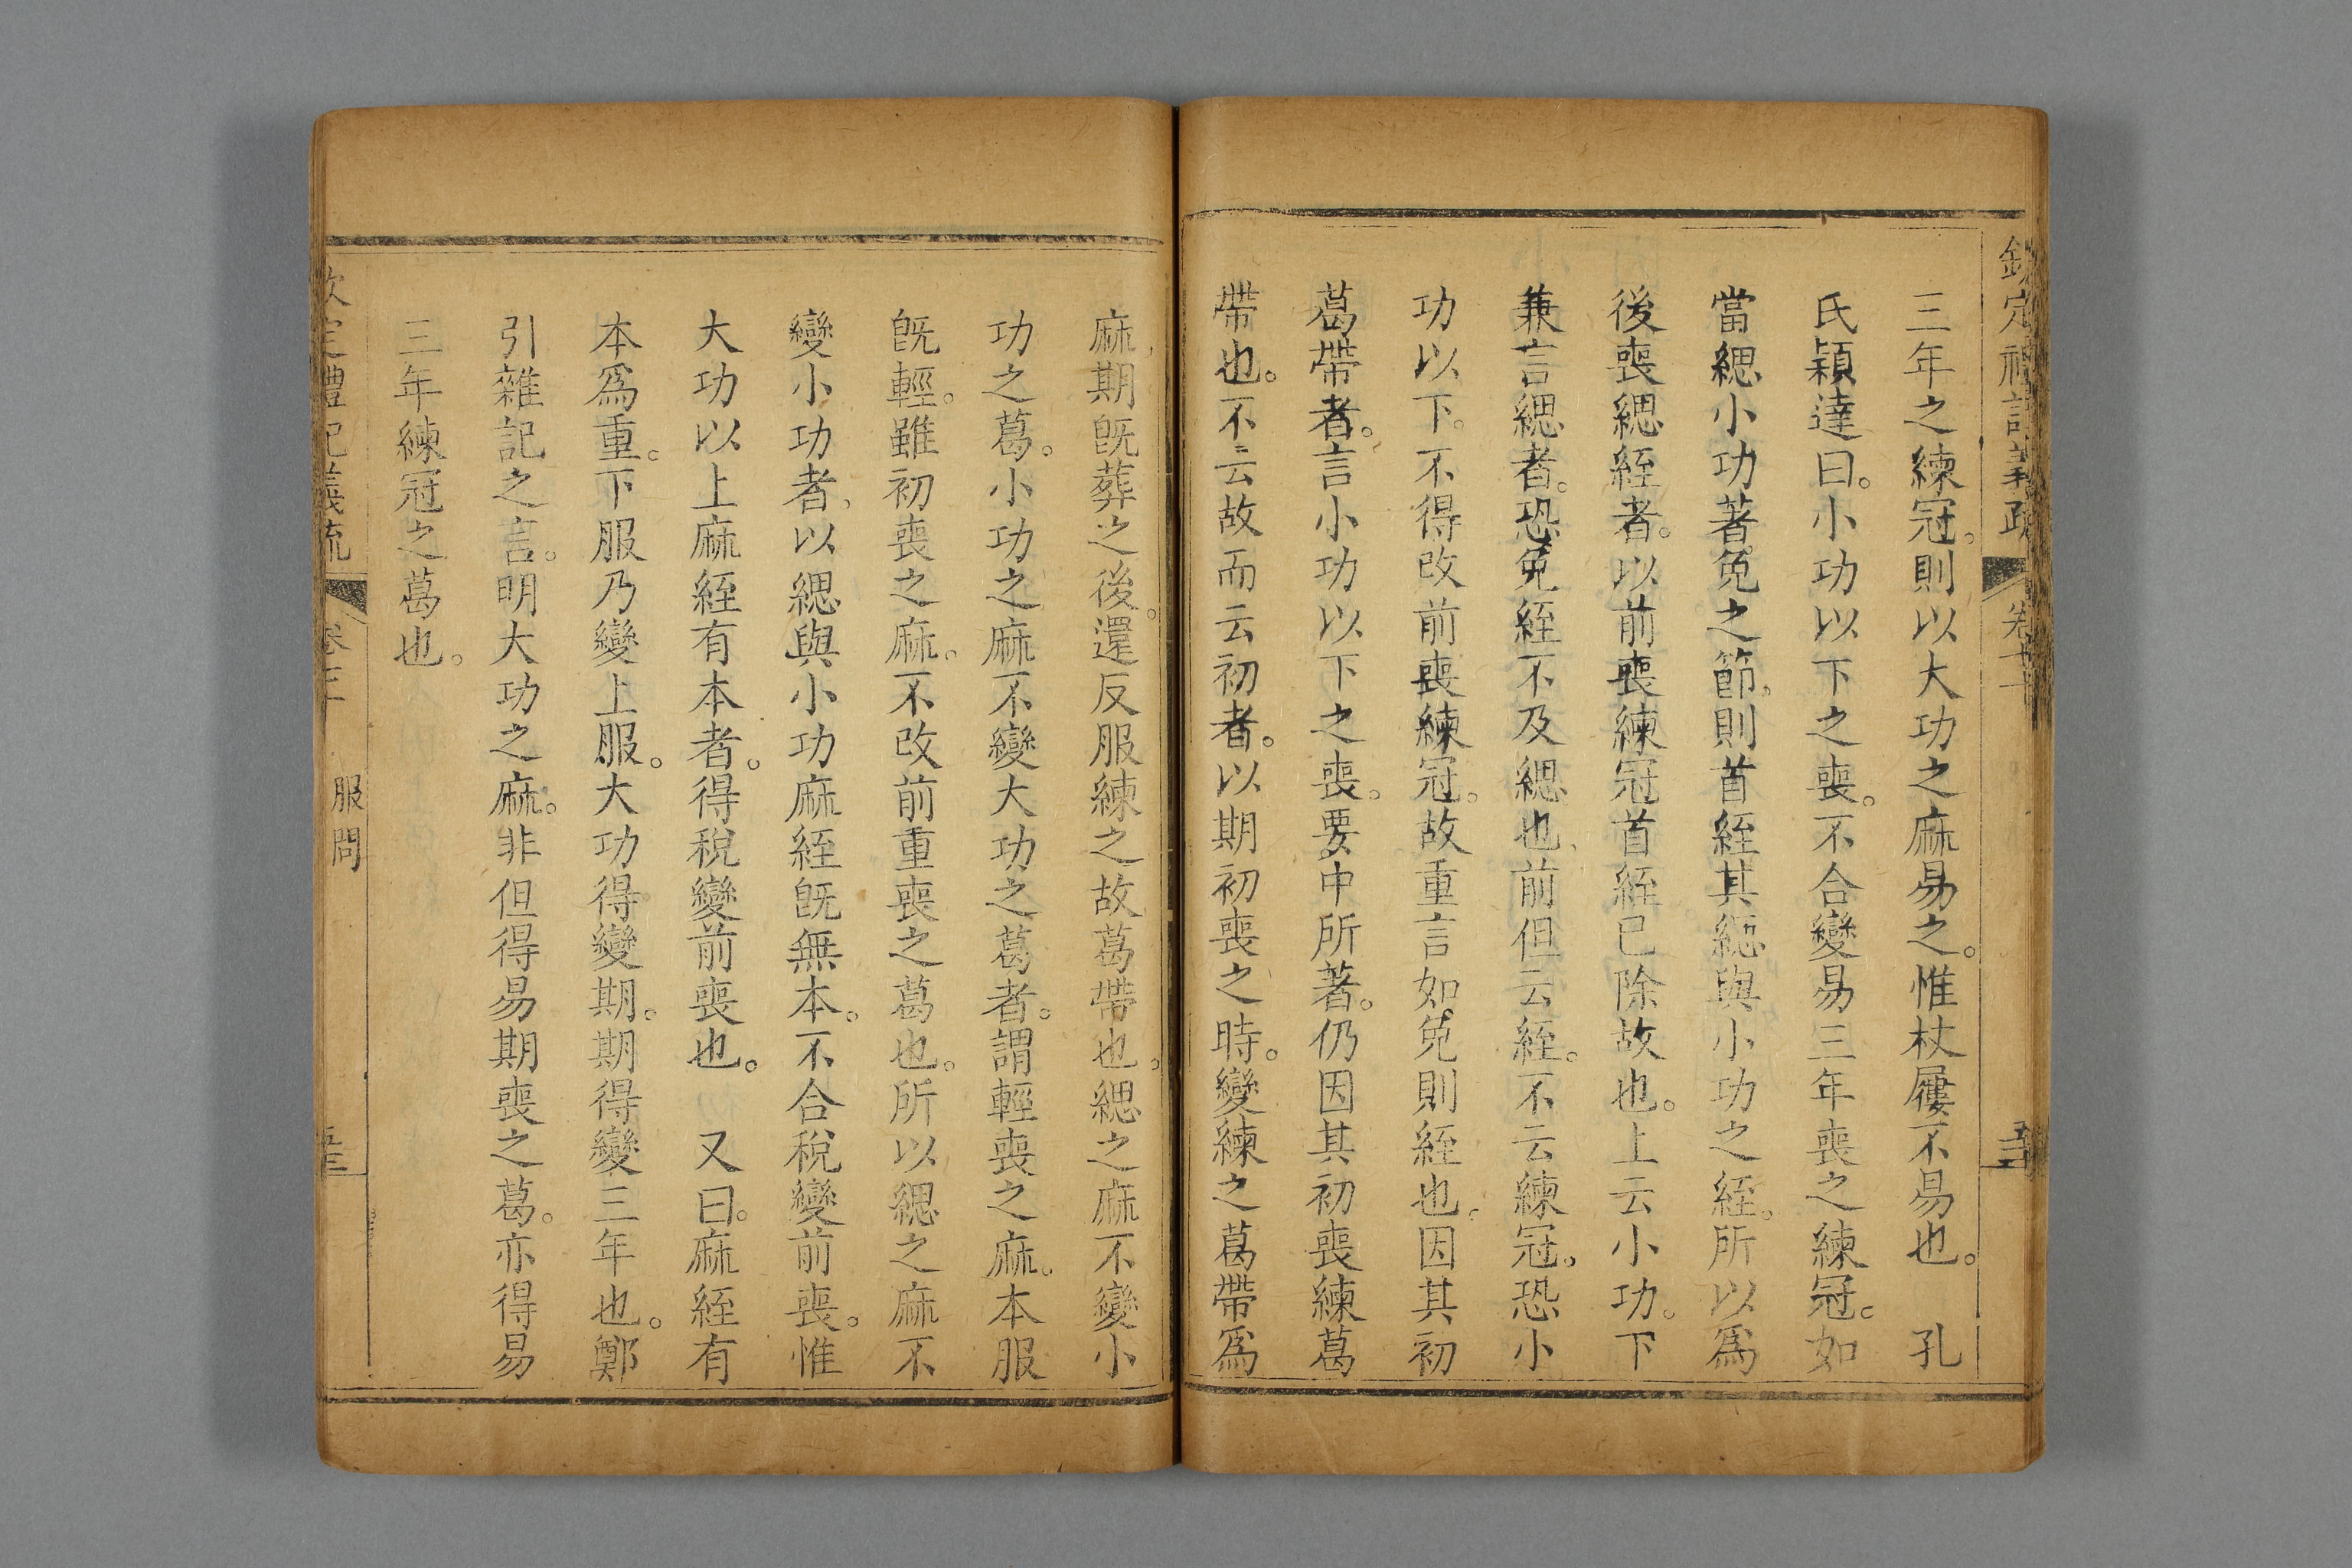 欽定禮記義疏 卷七十
三年之練冠。則以大功之麻易之。惟杖屨不易也。 孔
氏穎達曰。小功以下之喪。不合變易三年喪之練冠。如
當緦小功著免之節，則首絰其緦與小功之絰。所以為
後喪緦絰者。以前喪練冠首絰已除故也。上云小功。下
兼言緦者。恐免絰不及緦也，前但云絰。不云練冠。恐小
功以下。不得改前喪練冠。故重言如免則絰也。因其初
葛帶者。言小功以下之喪。要中所著。仍因其初喪練葛
帶也。不云故而云初者。以期初喪之時。變練之葛帶為
麻期旣葬之後。還反服練之故葛帶也。緦之麻不變小
功之葛。小功之麻不變大功之葛者。謂輕喪之麻。本服
旣輕。雖初喪之麻。不改前重喪之葛也。所以緦之麻不
變小功者，以緦與小功麻絰旣無本。不合稅變前喪。惟
大功以上麻絰有本者。得稅變前喪也。 又曰。麻絰有
本爲重。下服乃變上服。大功得變期。期得變三年也。鄭
引雜記之言。明大功之麻。非但得易期喪之葛。亦得易
三年練冠之葛也。
欽定禮記義疏
服問